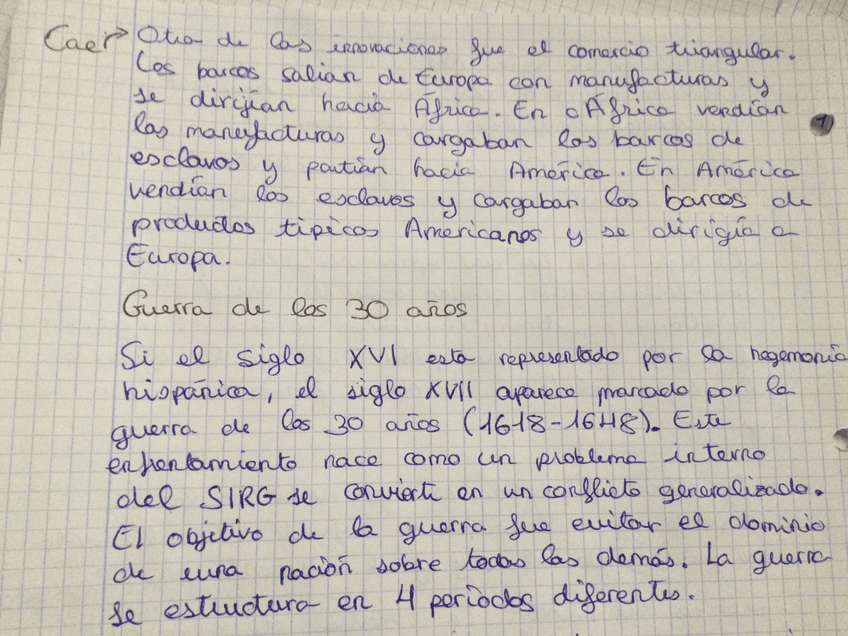 Caer→ Otra de las innovaciones fue el comercio triangular.
Los barcos salían de Europa con manufacturas y
se dirijían hacia África. En África vendían
las manufacturas y cargaban los barcos de
esclavos y partían hacia América. En América
vendían los esclavos y cargaban los barcos de
productos tipicos Americanos y se dirigía a
Europa.
Guerra de los 30 años
Si el siglo XVI esta representado por la hegemonía
hispánica, el siglo XVII aparece marcado por la
guerra de los 30 años (1618-1648). Este
enfrentamiento nace como un problema interno
del SIRG se convierte en un conflicto generalizado.
El objetivo de la guerra fue evitar el dominio
de una nación sobre todas las demás. La guerra
se estructura en 4 períodos diferentes.